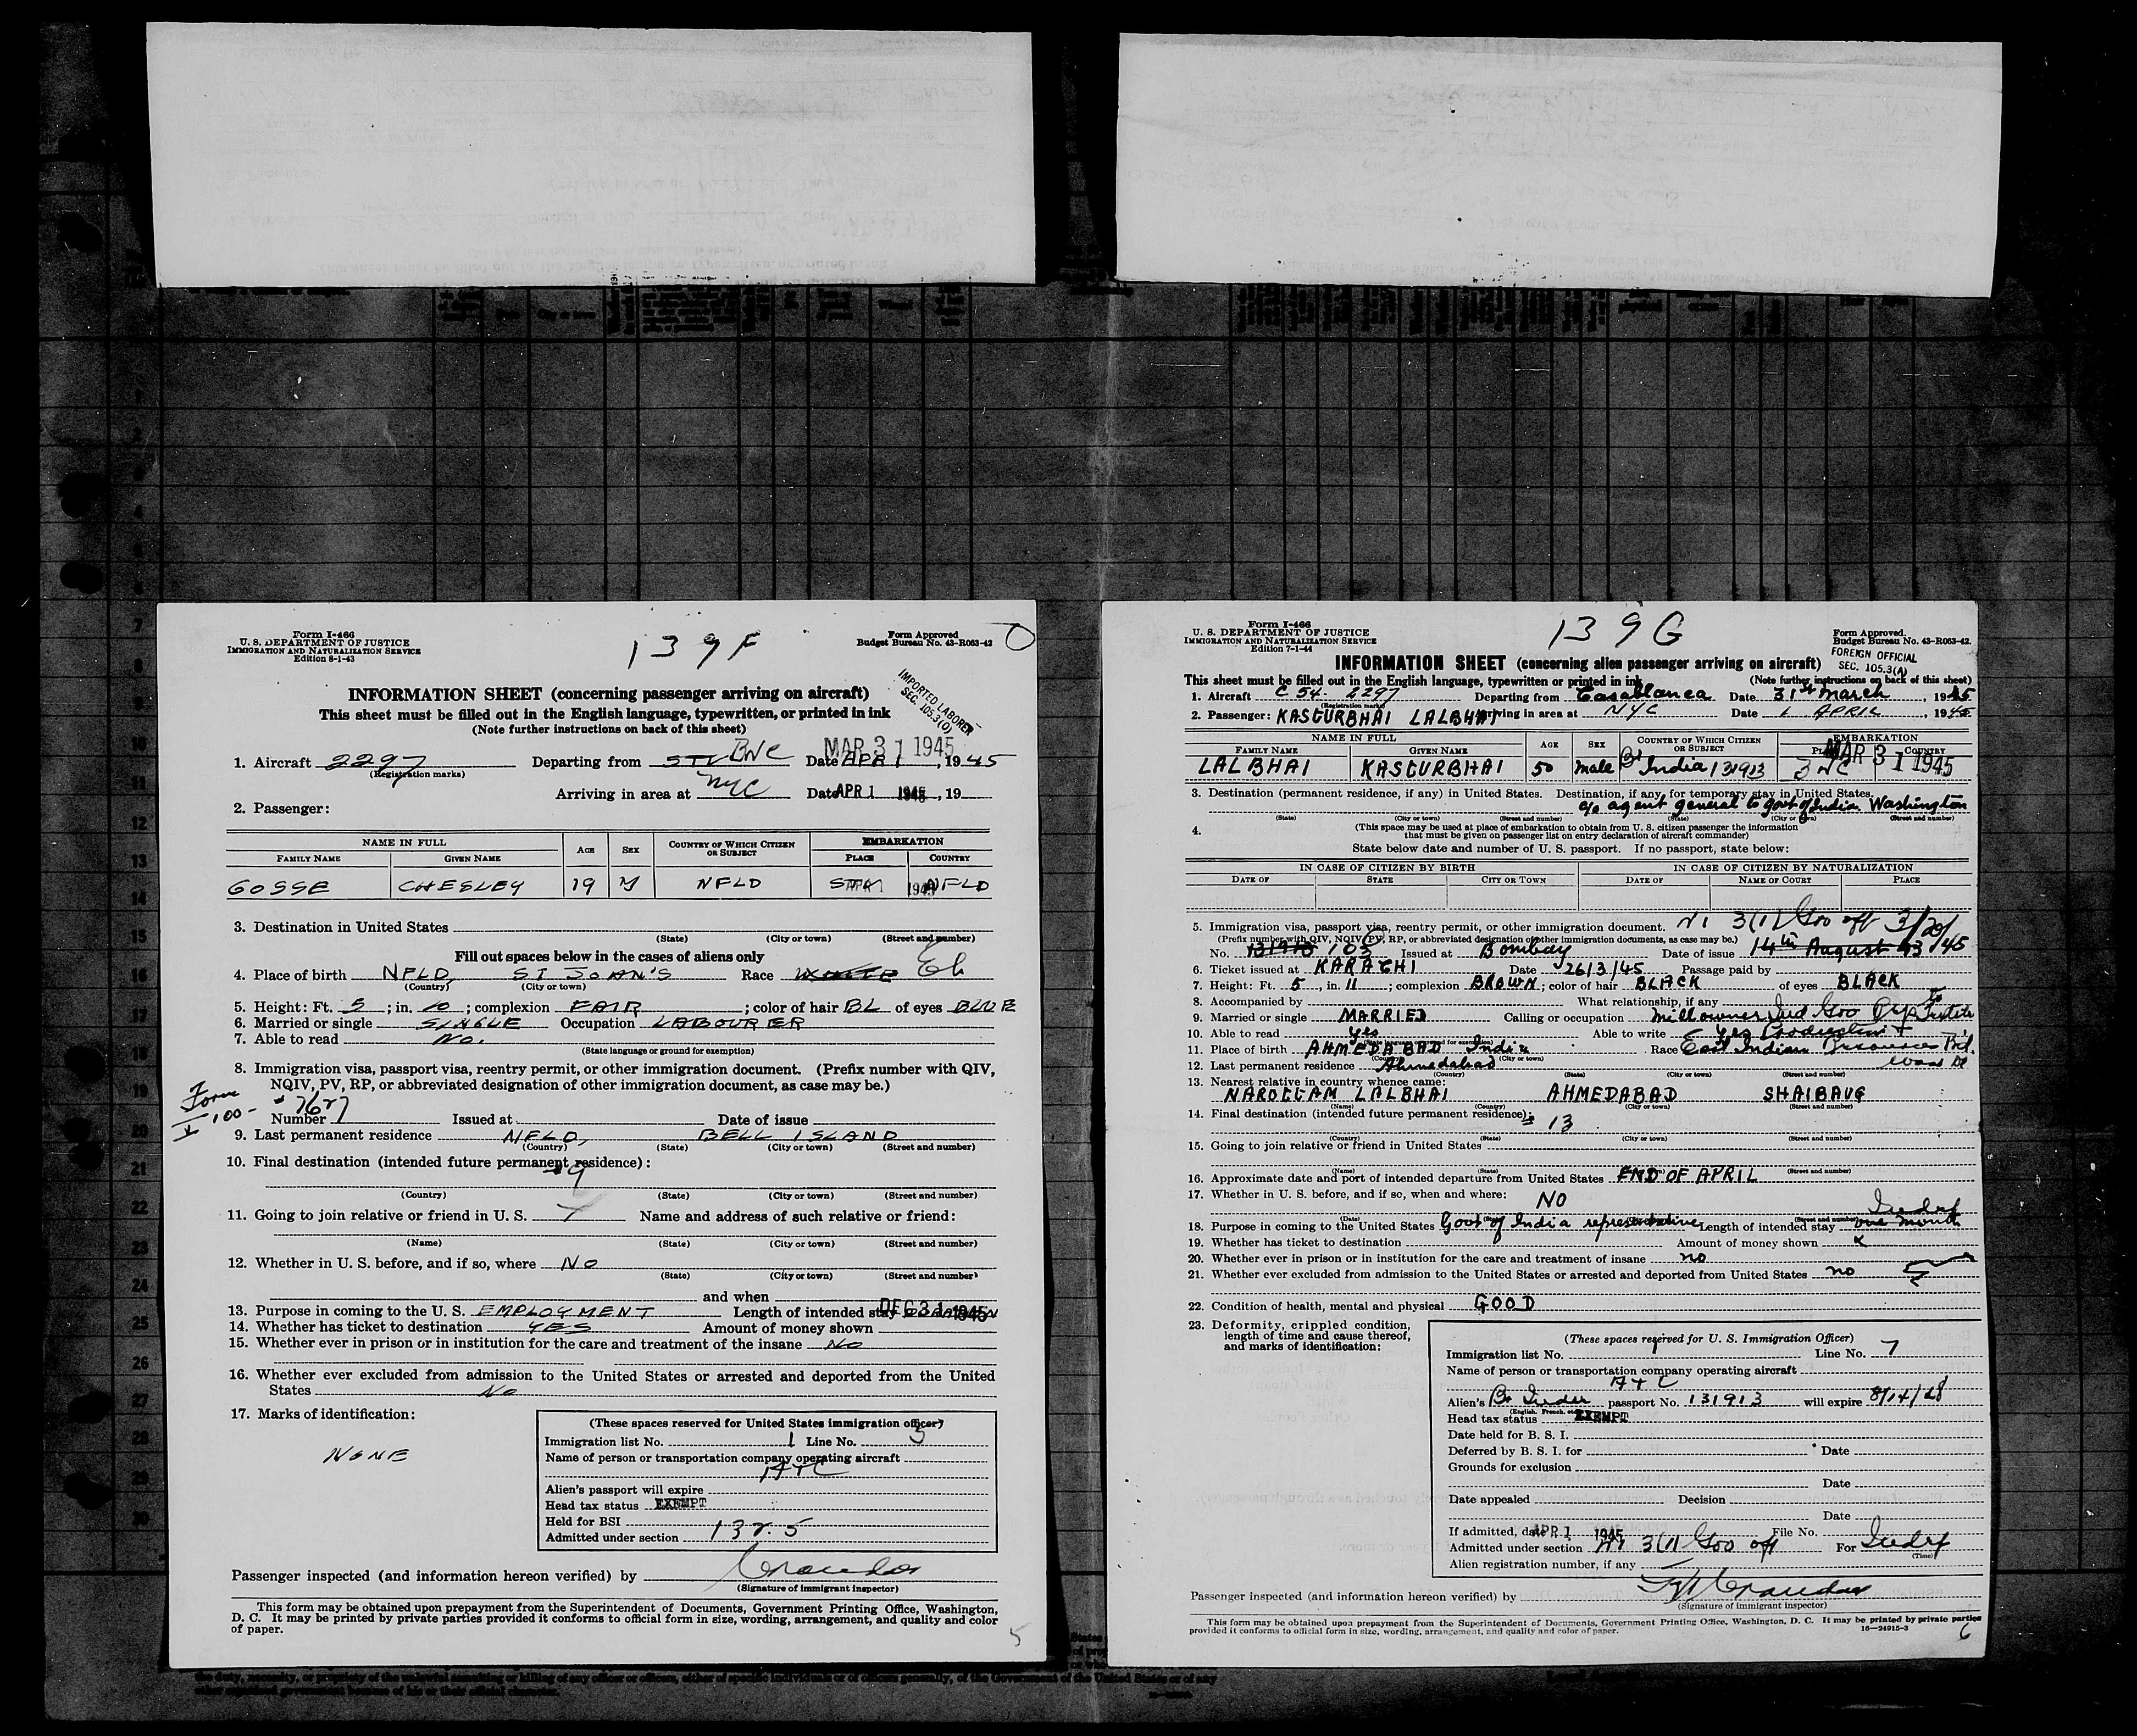 Form I-466
U. S. DEPARTMENT OF JUSTICE
IMMIGRATION AND NATURALIZATION SERVICE
Edition 8-1-43
139F
Form Approved
Budget Bureau No. 43-R063-42
IMPORTED LABORER
SEC. 105.3(O)
INFORMATION SHEET (concerning passenger arriving on aircraft)
This sheet must be filled out in the English language, typewritten, or printed in ink
(Note further instructions on back of this sheet)
MAR 31 1945
1. Aircraft 2297 Departing from BNC Date APR 1, 1945
(Registration marks)
Arriving in area at NYC Date APR 1 1945, 19
2. Passenger:
NAME IN FULL AGE SEX COUNTRY OF WHICH CITIZEN OR SUBJECT EMBARKATION
FAMILY NAME GIVEN NAME PLACE COUNTRY
GOSSE CHESLEY 19 M NFLD NFLD
3. Destination in United States
(State) (City or town) (Street and number)
Fill out spaces below in the cases of aliens only
4. Place of birth NFLD, ST JOHN'S Race WHITE
(Country) (City or town)
5. Height: Ft. 5; in. 10; complexion FAIR; color of hair BL of eyes BLUE
6. Married or single SINGLE Occupation LABOURER
7. Able to read No.
(State language or ground for exemption)
8. Immigration visa, passport visa, reentry permit, or other immigration document. (Prefix number with QIV,
NQIV, PV, RP, or abbreviated designation of other immigration document, as case may be.)
Form
I-100-
Number 7627 Issued at Date of issue
9. Last permanent residence NFLD, BELL ISLAND
(Country) (State) (City or town) (Street and number)
10. Final destination (intended future permanent residence):
9
(Country) (State) (City or town) (Street and number)
11. Going to join relative or friend in U. S. Name and address of such relative or friend:
(Name) (State) (City or town) (Street and number)
12. Whether in U. S. before, and if so, where No
(State) (City or town) (Street and number)
and when
13. Purpose in coming to the U. S. EMPLOYMENT Length of intended stay DEC 31 1945
14. Whether has ticket to destination YES Amount of money shown
15. Whether ever in prison or in institution for the care and treatment of the insane No
16. Whether ever excluded from admission to the United States or arrested and deported from the United
States No
17. Marks of identification:
NONE
(These spaces reserved for United States immigration officer)
Immigration list No. 1 Line No. 5
Name of person or transportation company operating aircraft
ATC
Alien's passport will expire
Head tax status EXEMPT
Held for BSI
Admitted under section 132.5
Passenger inspected (and information hereon verified) by
(Signature of immigrant inspector)
This form may be obtained upon prepayment from the Superintendent of Documents, Government Printing Office, Washington,
D. C. It may be printed by private parties provided it conforms to official form in size, wording, arrangement, and quality and color
of paper.
5
Form I-466
U. S. DEPARTMENT OF JUSTICE
IMMIGRATION AND NATURALIZATION SERVICE
Edition 7-1-44
139G
Form Approved.
Budget Bureau No. 43-R063-42.
FOREIGN OFFICIAL
SEC. 105.3(A)
INFORMATION SHEET (concerning alien passenger arriving on aircraft)
This sheet must be filled out in the English language, typewritten or printed in ink (Note further instructions on back of this sheet)
1. Aircraft C 54- 2297 Departing from Casablanca Date 31st March, 1945
(Registration marks)
2. Passenger: KASTURBHAI LALBHAI Arriving in area at NYC Date 1 APRIL, 1945
NAME IN FULL AGE SEX COUNTRY OF WHICH CITIZEN OR SUBJECT EMBARKATION
FAMILY NAME GIVEN NAME PLACE COUNTRY
MAR 31 1945
LALBHAI KASTURBHAI 50 Male Br India 131913 BNC
3. Destination (permanent residence, if any) in United States. Destination, if any, for temporary stay in United States.
c/o agent general to govt of India. Washington
(State) (City or town) (Street and number) (State) (City or town) (Street and number)
4. (This space may be used at place of embarkation to obtain from U. S. citizen passenger the information
that must be given on passenger list on entry declaration of aircraft commander)
State below date and number of U. S. passport. If no passport, state below:
IN CASE OF CITIZEN BY BIRTH IN CASE OF CITIZEN BY NATURALIZATION
DATE OF STATE CITY OR TOWN DATE OF NAME OF COURT PLACE
5. Immigration visa, passport visa, reentry permit, or other immigration document. 3(1) Gov off 3/20/45
(Prefix number with QIV, NQIV, PV, RP, or abbreviated designation of other immigration documents, as case may be.)
No. 131913 103 Issued at Bombay Date of issue 14th August 43
6. Ticket issued at KARACHI Date 26/3/45 Passage paid by
7. Height: Ft. 5, in. 11; complexion BROWN; color of hair BLACK of eyes BLACK
8. Accompanied by What relationship, if any
9. Married or single MARRIED Calling or occupation Mill owner
10. Able to read Yes Able to write Yes
11. Place of birth AHMEDABAD India Race East Indian
12. Last permanent residence Ahmedabad
(Country) (State) (City or town) (Street and number)
13. Nearest relative in country whence came:
NAROTTAM LALBHAI AHMEDABAD SHAIBAUG
(Name) (Country) (City or town) (Street and number)
14. Final destination (intended future permanent residence): 13
(Country) (State) (City or town) (Street and number)
15. Going to join relative or friend in United States
(Name) (State) (City or town) (Street and number)
16. Approximate date and port of intended departure from United States END OF APRIL
17. Whether in U. S. before, and if so, when and where: NO
(Date) (State) (Street and number)
18. Purpose in coming to the United States Govt of India representative Length of intended stay one month Indef
19. Whether has ticket to destination Amount of money shown
20. Whether ever in prison or in institution for the care and treatment of insane no
21. Whether ever excluded from admission to the United States or arrested and deported from United States no
22. Condition of health, mental and physical GOOD
23. Deformity, crippled condition,
length of time and cause thereof,
and marks of identification:
(These spaces reserved for U. S. Immigration Officer)
Immigration list No. 1 Line No. 7
Name of person or transportation company operating aircraft
ATC
Alien's Br Indian passport No. 131913 will expire 8/14/48
(English, French, etc.)
Head tax status EXEMPT
Date held for B. S. I.
Deferred by B. S. I. for Date
Grounds for exclusion
Date
Date appealed Decision
Date
If admitted, date APR 1 1945 File No.
Admitted under section 3(1) Gov off For Indef
(Time)
Alien registration number, if any
Passenger inspected (and information hereon verified) by
(Signature of immigrant inspector)
This form may be obtained upon prepayment from the Superintendent of Documents, Government Printing Office, Washington, D. C. It may be printed by private parties
provided it conforms to official form in size, wording, arrangement, and quality and color of paper.
16—24915-3
6